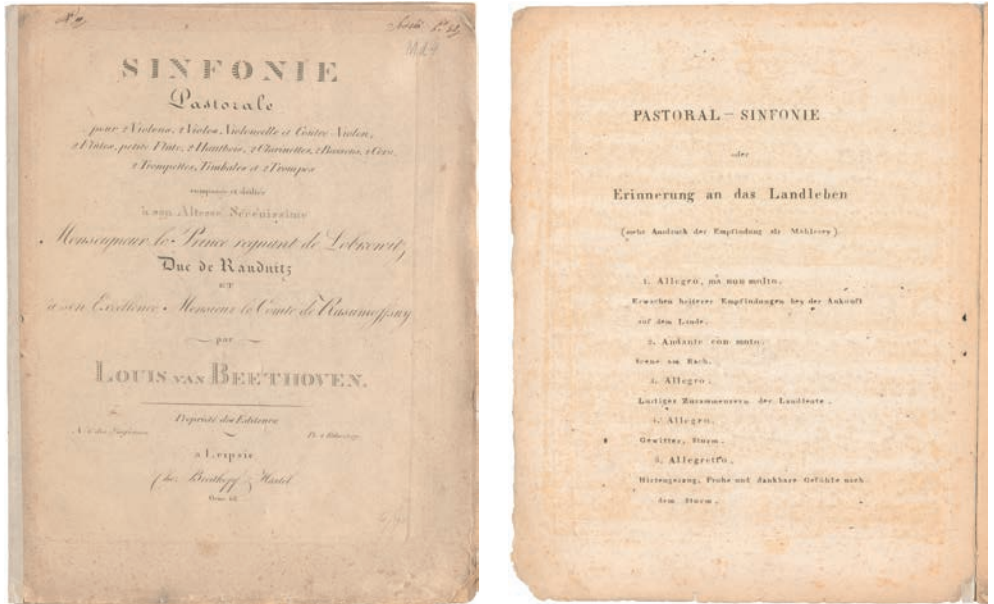 Nº
Md 9
SINFONIE
Pastorale
pour 2 Violons, 2 Violes, Violoncelle et Contre-Violon,
2 Flûtes, petite Flûte, 2 Hautbois, 2 Clarinettes, 2 Bassons, 2 Cors,
2 Trompettes, Timbales et 2 Trompes
composée et dédiée
à son Altesse Sérénissime
Monseigneur le Prince regnant de Lobkowitz,
Duc de Raudnitz
ET
à son Excellence Monsieur le Comte de Rasumoffsky
par
LOUIS VAN BEETHOVEN.
Propriété des Editeurs
à Leipsic
Chez Breitkopf & Härtel
PASTORAL - SINFONIE
oder
Erinnerung an das Landleben
(mehr Ausdruck der Empfindung als Mahlerey)
1. Allegro, ma non molto.
Erwachen heiterer Empfindungen bey der Ankunft
auf dem Lande.
2. Andante con moto.
Scene am Bach.
3. Allegro.
Lustiges Zusammenseyn der Landleute.
4. Allegro.
Gewitter, Sturm.
5. Allegretto.
Hirtengesang, Frohe und dankbare Gefühle nach
dem Sturm.